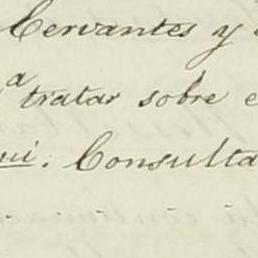 Cervantes y
a tratar sobre
ui. Consulta